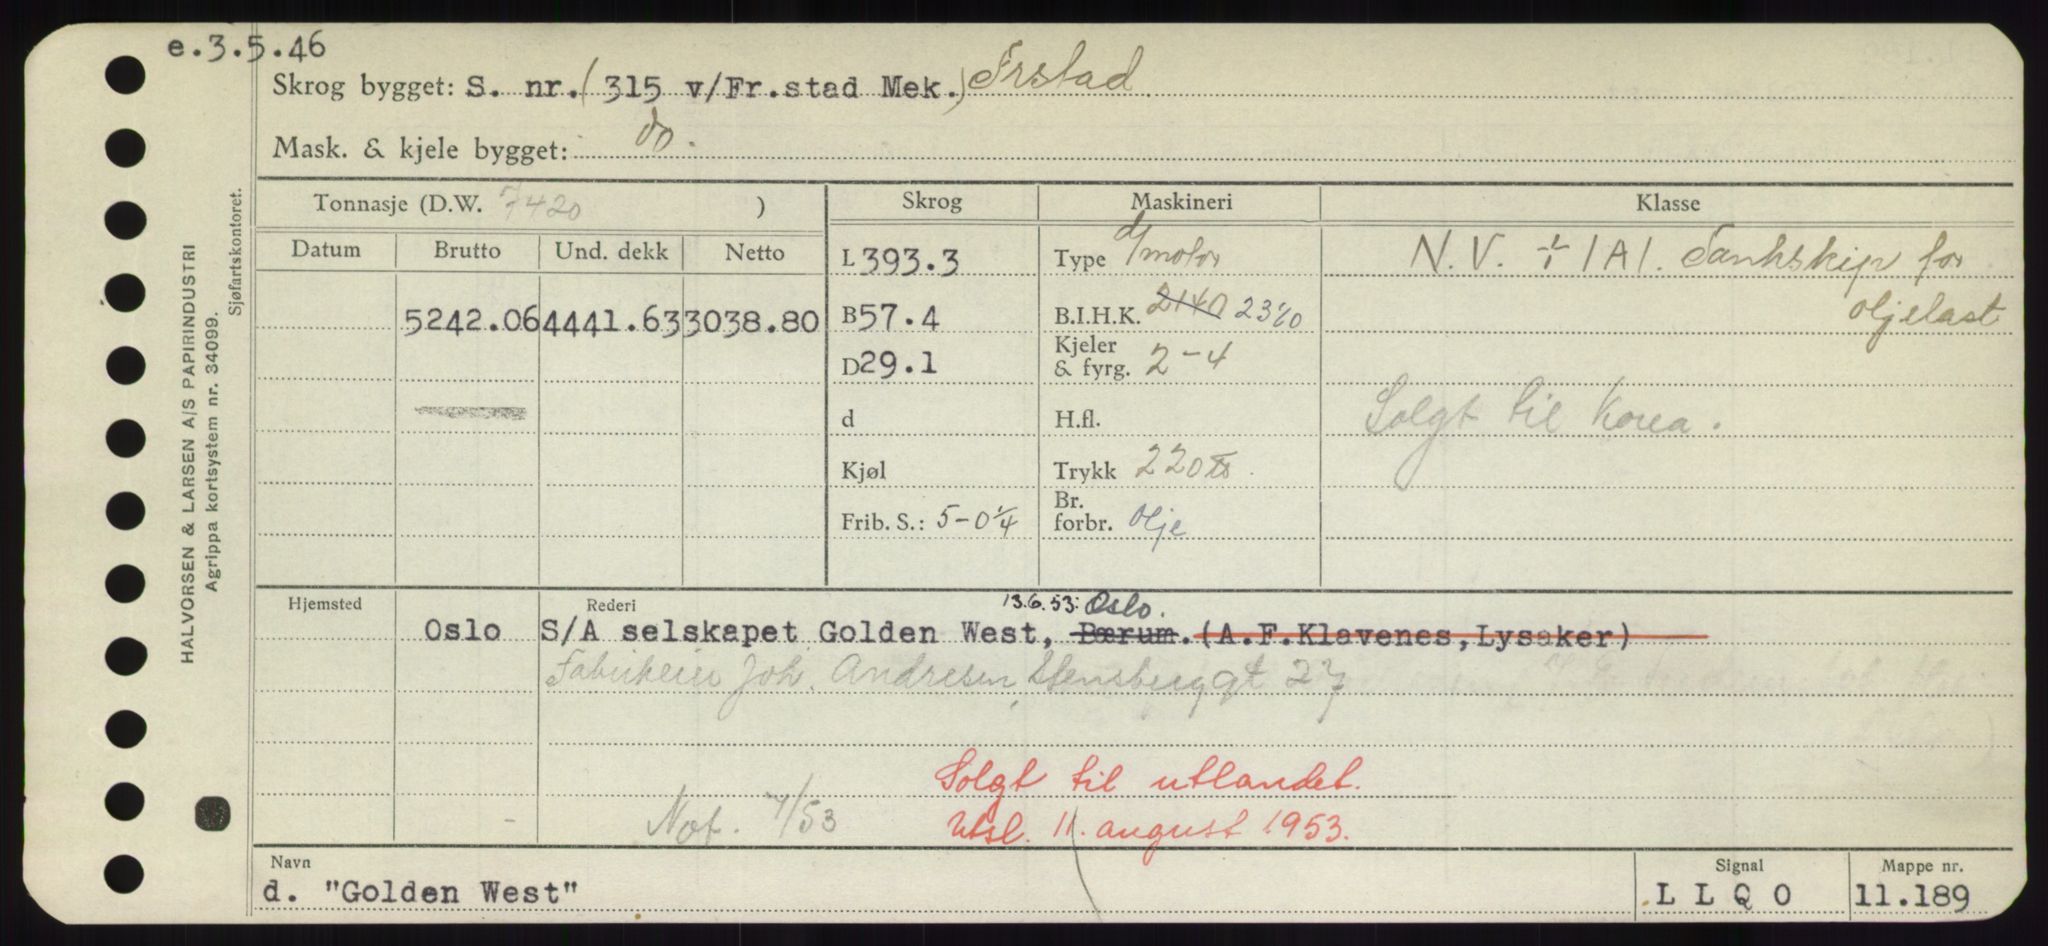 e.3.5.46
Skrog bygget: S. nr. (315 v/Fr.stad Mek.) Frstad
Mask. & kjele bygget: do.
Tonnasje (D.W. 7420 ) Skrog Maskineri Klasse
Datum Brutto Und. dekk Netto
L 393.3 Type d/motor N.V. + 1A1. Tankskip for
oljelast
5242.06 4441.63 3038.80 B 57.4 B.I.H.K. 2140 2320
D 29.1 Kjeler & fyrg. 2-4
d H.fl. Solgt til Korea.
Kjøl Trykk 220
Frib. S.: 5-0¼ Br. forbr. olje
Hjemsted Rederi 13.6.53: Oslo.
Oslo S/A selskapet Golden West, Bærum. (A.F.Klavenes, Lysaker)
Joh. Andresen, Stensberggt 27
Solgt til utlandet.
Not. 7/53 Utsl. 11. august 1953.
Navn Signal Mappe nr.
d. "Golden West" L L Q O 11.189
HALVORSEN & LARSEN A/S PAPIRINDUSTRI
Agrippa kortsystem nr. 34099.
Sjøfartskontoret.